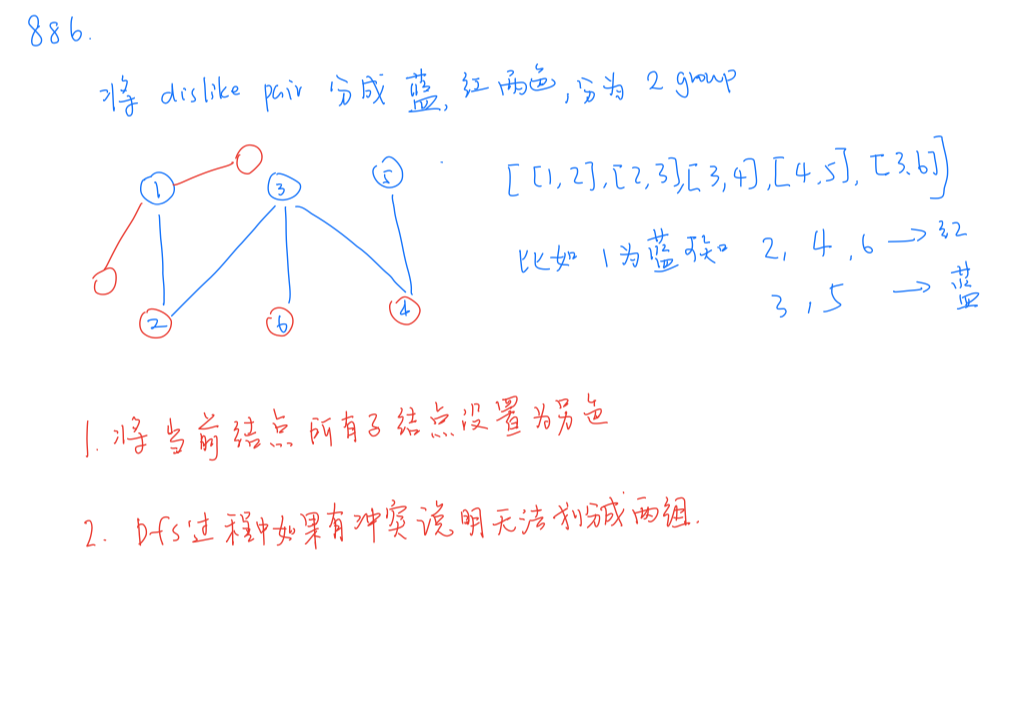 886.
将 dislike pair 分成 蓝, 红 两色, 分为 2 group
1 3 5
2 6 4
[ [1,2], [2,3], [3,4], [4,5], [3,6] ]
比如 1 为蓝 2, 4, 6 → 红
3, 5 → 蓝
1. 将当前结点所有子结点设置为另色
2. Dfs过程中如果有冲突说明无法划分成两组.